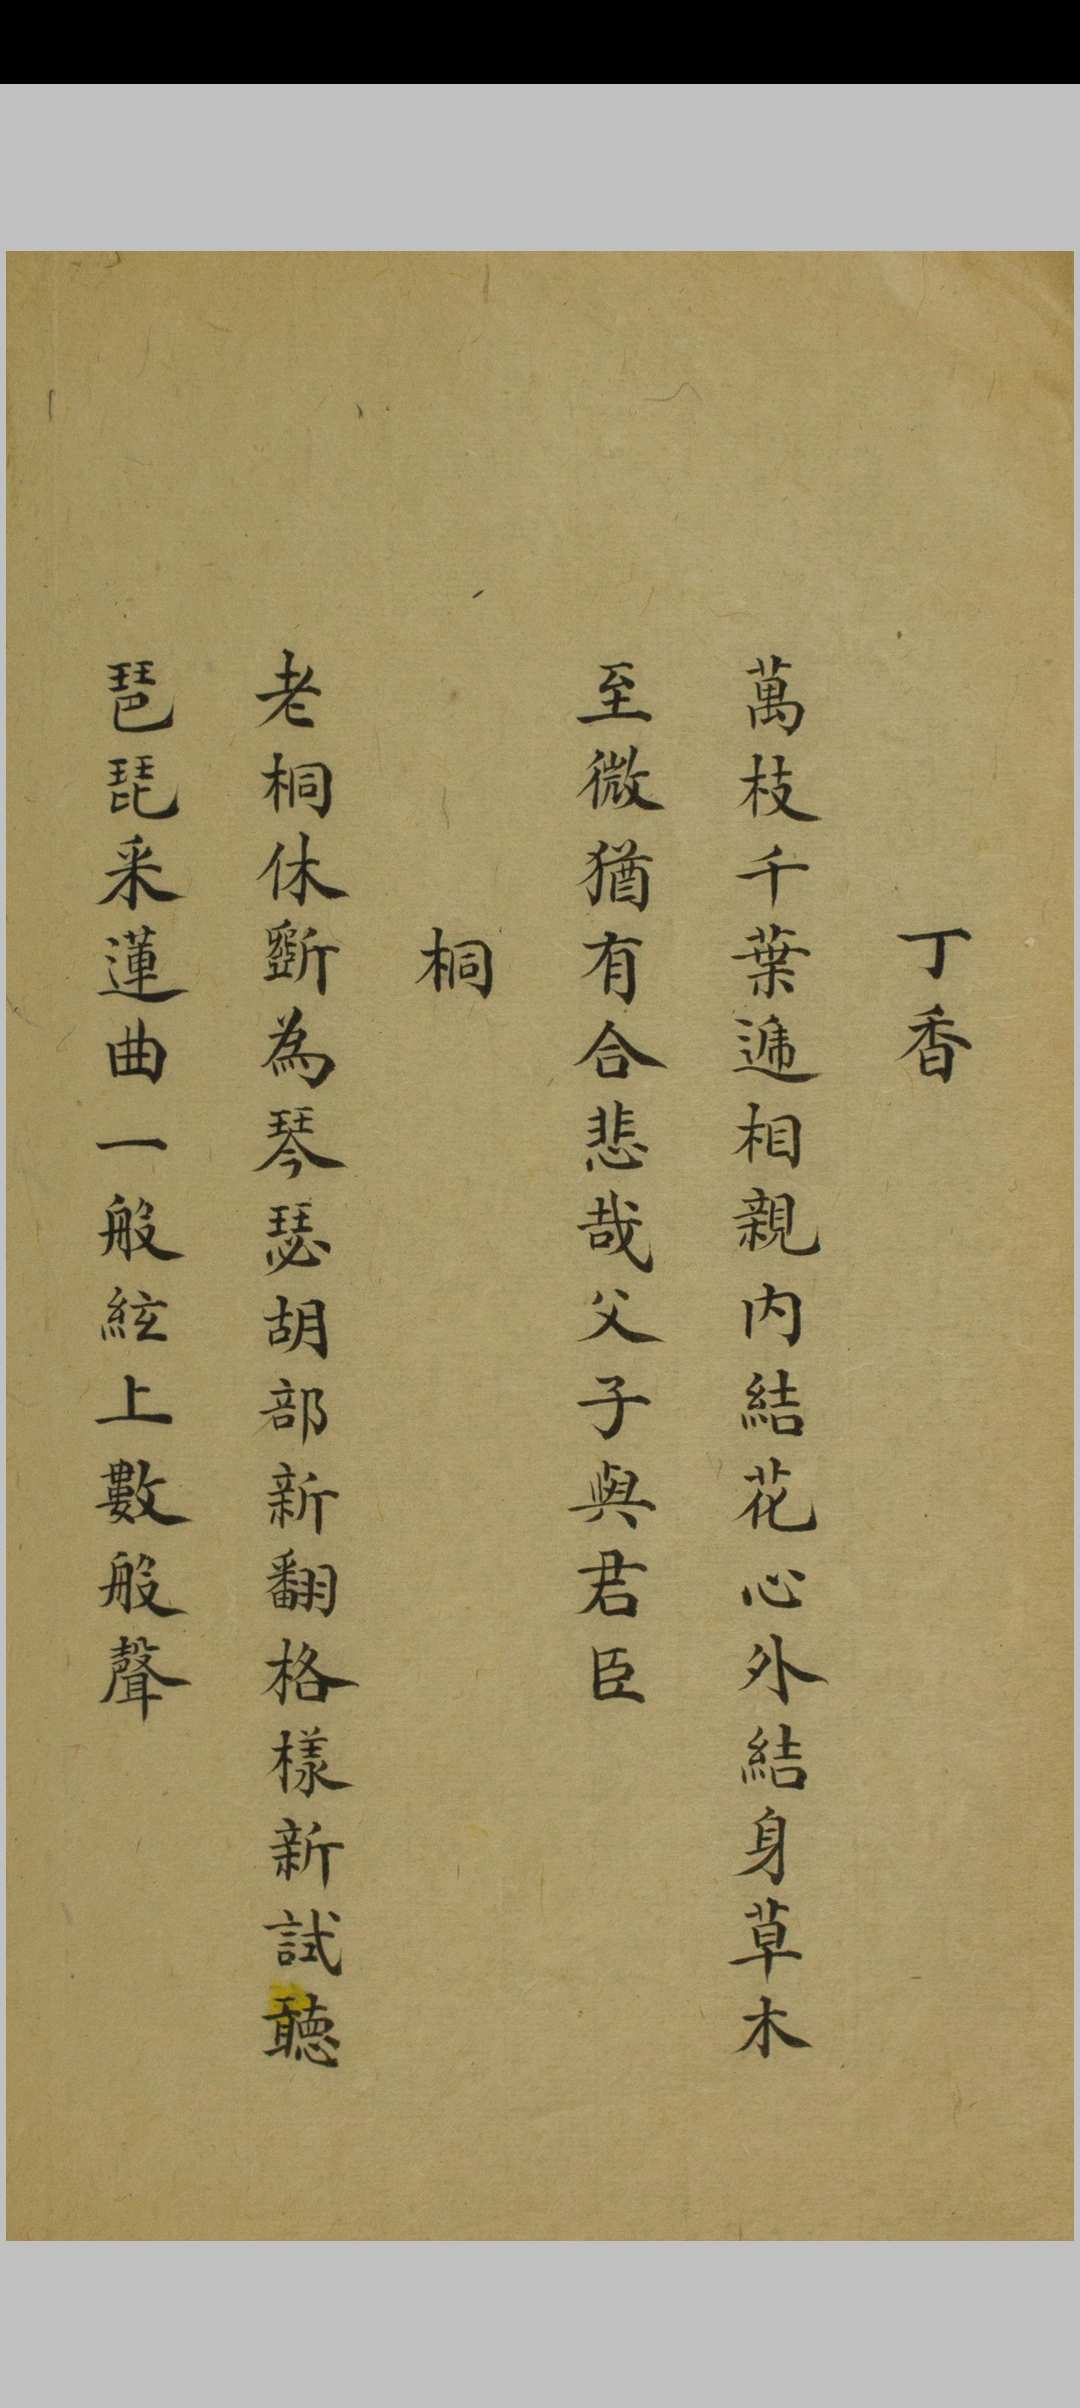 丁香
萬枝千葉遞相親內結花心外結身草木
至微猶有合悲哉父子與君臣
桐
老桐休斲為琴瑟胡部新翻格樣新試聽
琶琵采蓮曲一般絃上數般聲